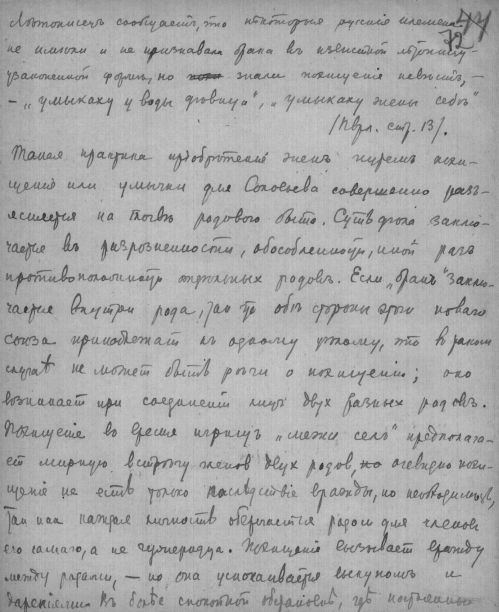 77
72
Лѣтописецъ сообщаетъ, что нѣкоторые русскіе племена
не имѣли и не признавали брака въ извѣстной лѣтописцу
узаконенной формѣ, но знали похищеніе невѣстъ, –
– „умыкаху у воды дѣвица", „умыкаху жены себѣ"
(Лавр. стр. 13).
Такая практика пріобрѣтенія женъ путемъ похи-
щенія или умычки для Соловьева совершенно разъ-
ясняется на почвѣ родового быта. Суть дѣла заклю-
чается въ разрозненности, обособленности, иной разъ
противоположности отдѣльныхъ родовъ. Если „бракъ" заклю-
чается внутри рода, такъ что обѣ стороны этого новаго
союза принадлежатъ къ одному цѣлому, то въ такомъ
случаѣ не можетъ быть рѣчи о похищеніи; оно
возникаетъ при соединеніи лицъ двухъ разныхъ родовъ.
Похищеніе во время игрищъ „межи селъ" предполага-
етъ мирную встрѣчу членовъ двухъ родовъ, очевидно похи-
щеніе не есть только послѣдствіе вражды, но необходимость,
такъ какъ каждая личность оберегается родомъ для членовъ
его самаго, а не чужеродца. Похищеніе вызываетъ вражду
между родами, – но она успокаивается выкупомъ и
дареніями. Въ болѣе спокойной обстановкѣ, гдѣ